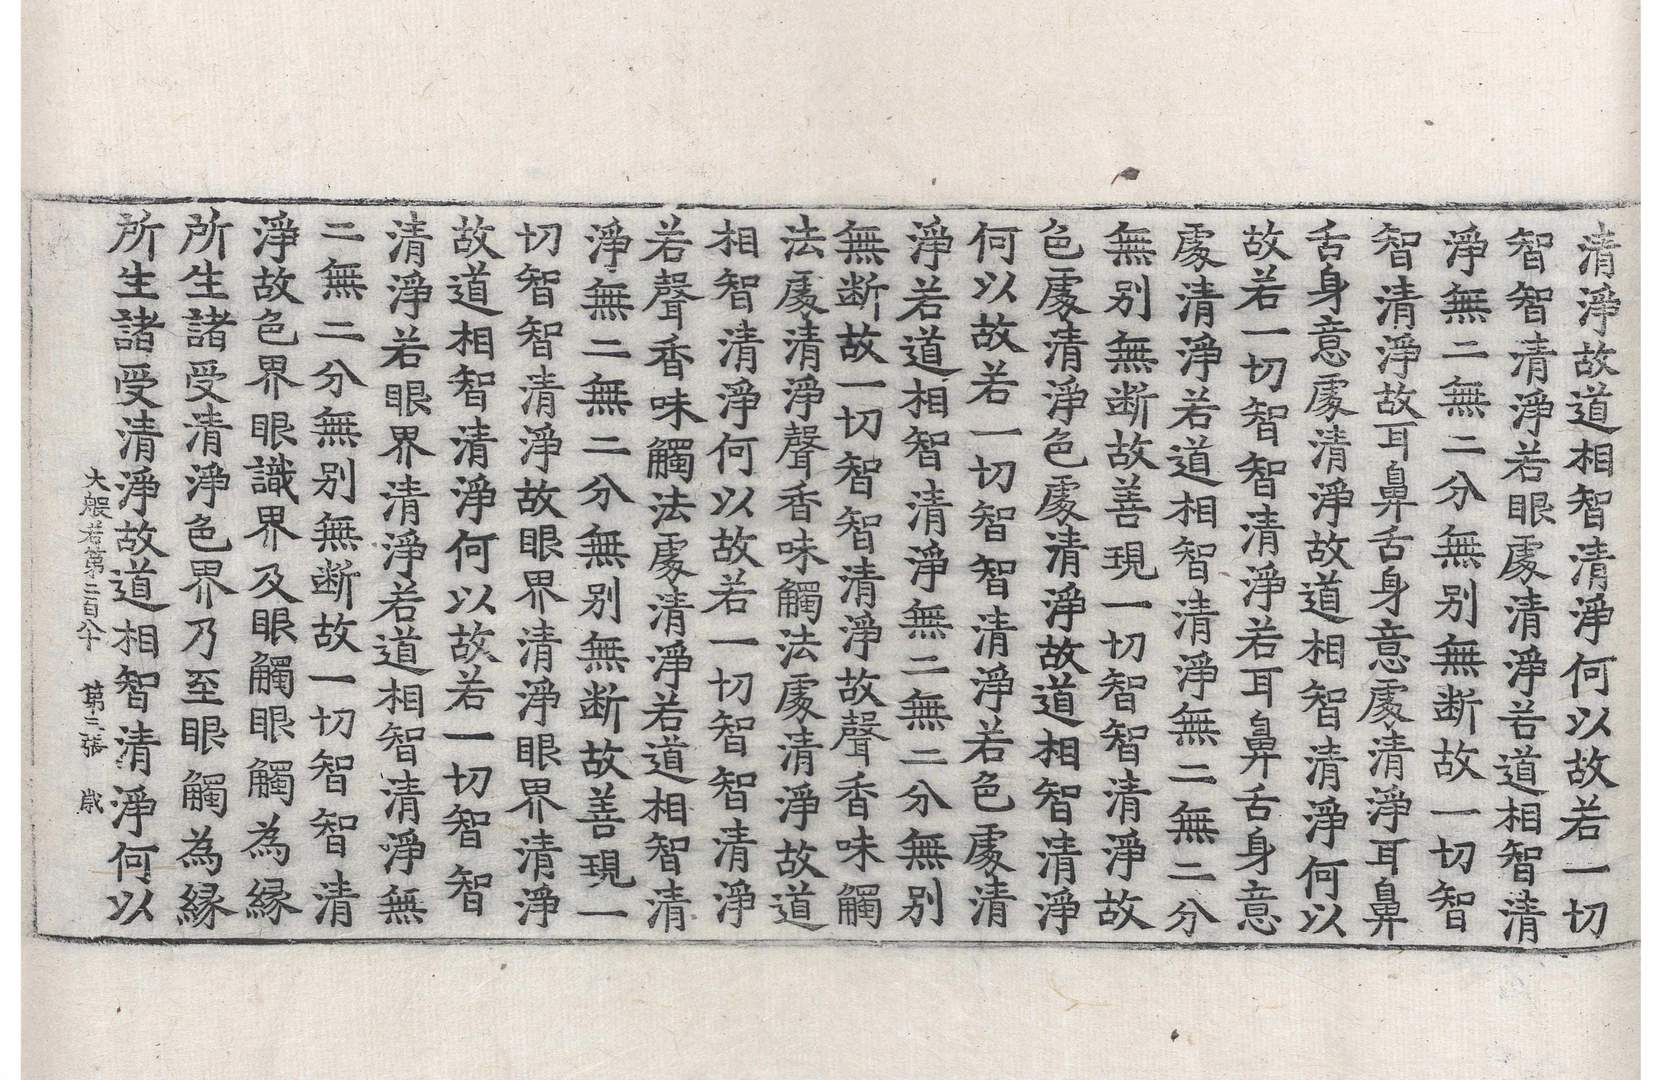 清淨故道相智清淨何以故若一切
智智清淨若眼處清淨若道相智清
淨無二無二分無別無斷故一切智
智清淨故耳鼻舌身意處清淨耳鼻
舌身意處清淨故道相智清淨何以
故若一切智智清淨若耳鼻舌身意
處清淨若道相智清淨無二無二分
無別無断故善現一切智智清淨故
色處清淨色處清淨故道相智清淨
何以故若一切智智清淨若色處清
淨若道相智清淨無二無二分無別
無断故一切智智清淨故聲香味觸
法處清淨聲香味觸法處清淨故道
相智清淨何以故若一切智智清淨
若聲香味觸法處清淨若道相智清
淨無二無二分無別無断故善現一
切智智清淨故眼界清淨眼界清淨
故道相智清淨何以故若一切智智
清淨若眼界清淨若道相智清淨無
二無二分無別無断故一切智智清
淨故色界眼識界及眼觸眼觸為緣
所生諸受清淨色界乃至眼觸為緣
所生諸受清淨故道相智清淨何以
大般若第二百八十 第三張 歲